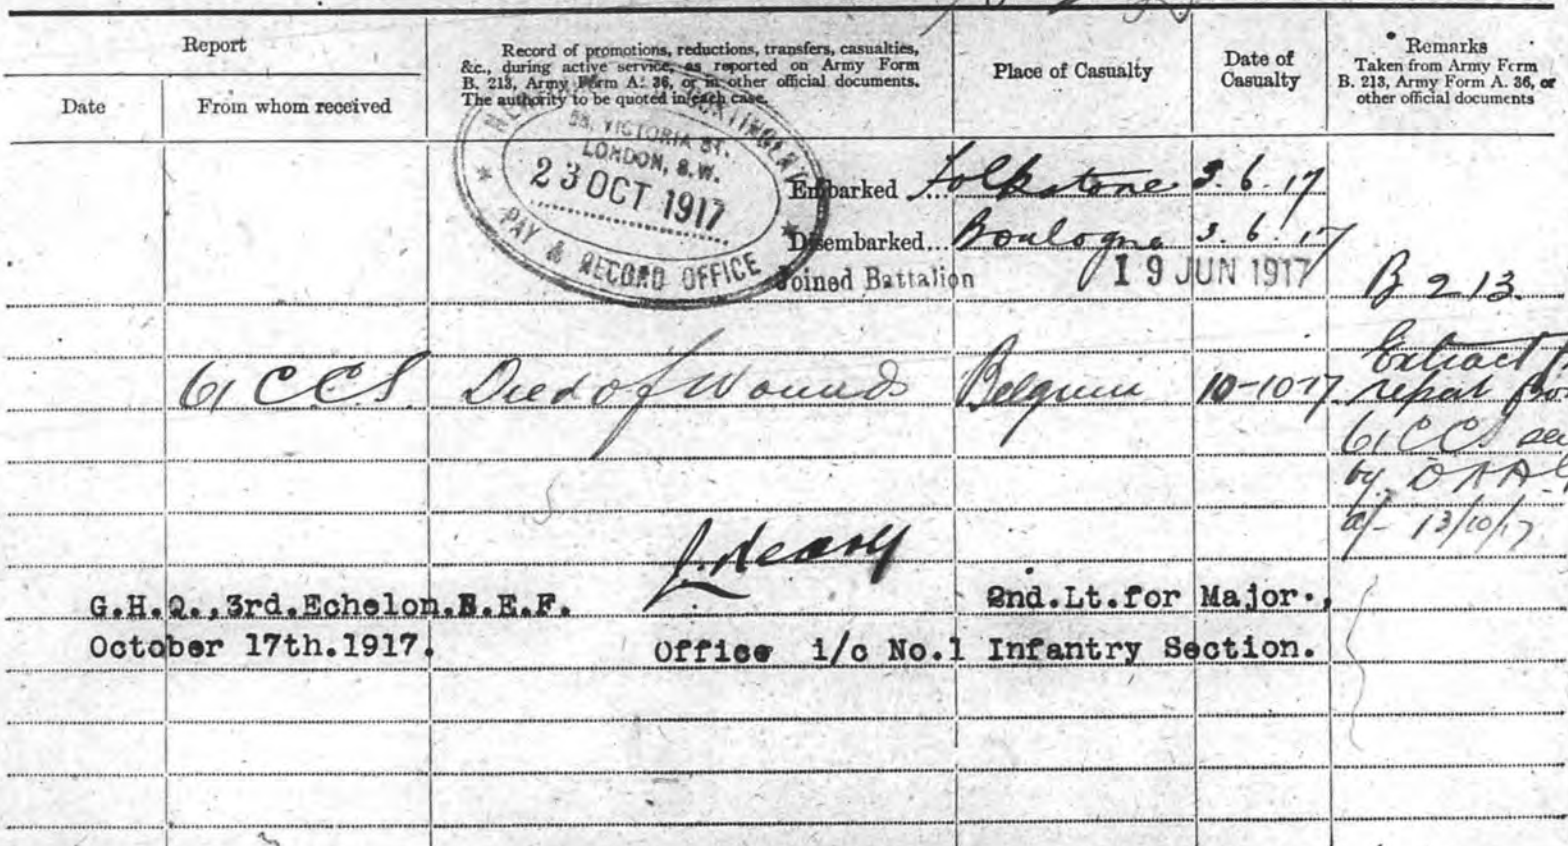 Report
Date
From whom received
Record of promotions, reductions, transfers, casualties,
&c., during active service, as reported on Army Form
B. 213, Army Form A. 36, or in other official documents.
The authority to be quoted in each case.
Place of Casualty
Date of
Casualty
Remarks
Taken from Army Form
B. 213, Army Form A. 36, or
other official documents
58, VICTORIA ST.
LONDON, S.W.
23 OCT 1917
PAY & RECORD OFFICE
Embarked ... Folkstone 3.6.17
Disembarked... Boulogne 3.6.17
Joined Battalion 19 JUN 1917
B 213.
61 C.C.S. Died of Wounds Belgium 10-10-17
Extract
report
61 CCS
by
13/10/17
G.H.Q.,3rd.Echelon.B.E.F. 2nd.Lt.for Major.,
October 17th.1917. Office i/c No.1 Infantry Section.